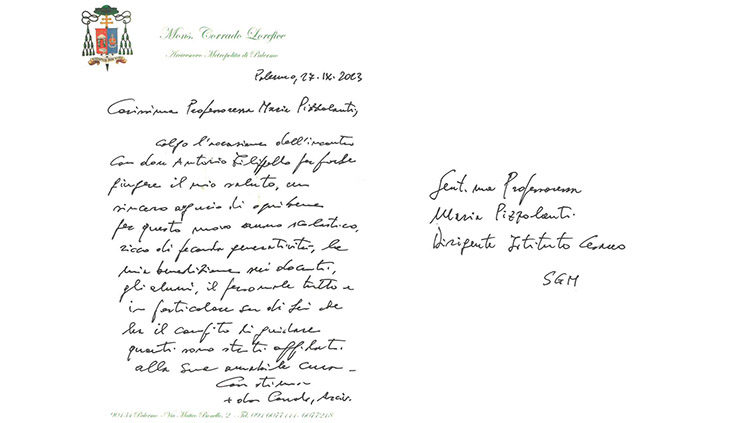 Mons. Corrado Lorefice
Arcivescovo Metropolita di Palermo
Palermo, 27.IX.2023
Carissima Professoressa Maria Pizzolanti,
Colgo l'occasione dell'incontro
con don Antonio Filippello per farLe
giungere il mio saluto, un
sincero augurio di ogni bene
per questo nuovo anno scolastico,
ricco di feconda generatività, la
mia benedizione sui docenti,
gli alunni, il personale tutto e
in particolare su di Lei che
ha il compito di guidare
quanti sono stati affidati
alla Sua amabile cura.
Con stima
+ don Corrado, Arciv.
90134 Palermo - Via Matteo Bonello, 2 - Tel. 091 6077111 - 6077218
Gent.ma Professoressa
Maria Pizzolanti
Dirigente Istituto
SGM